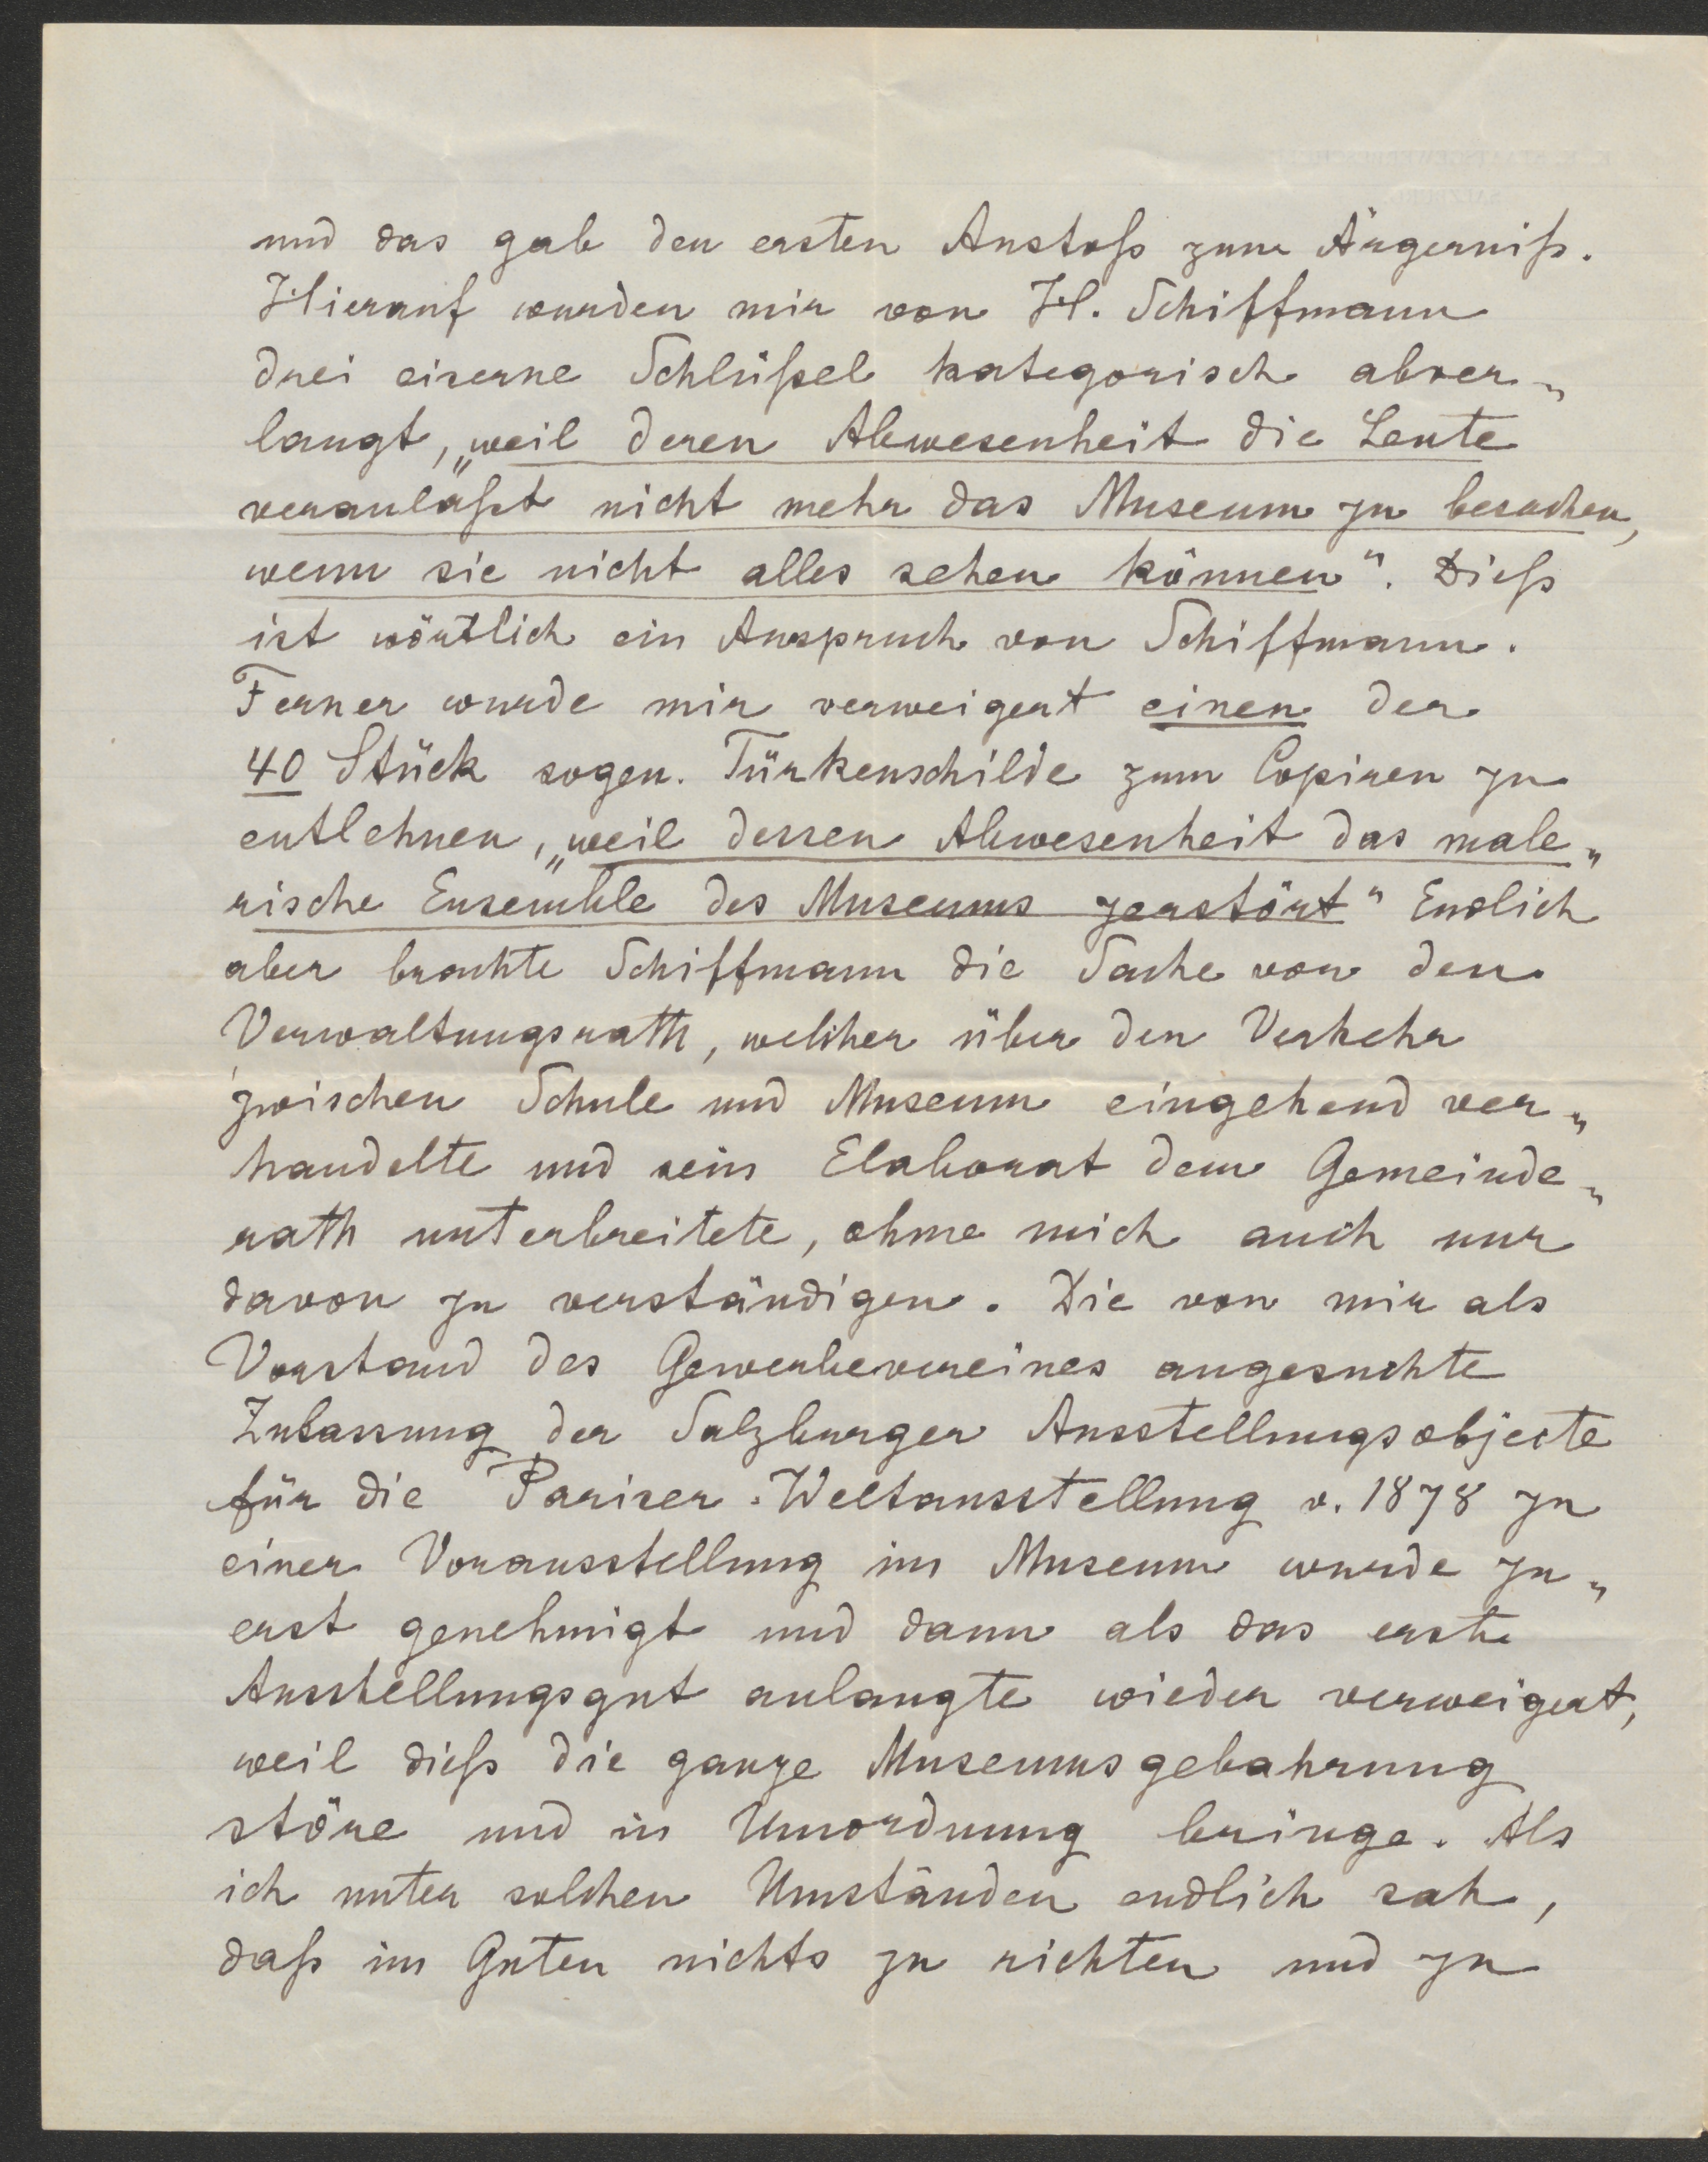 und das gab den ersten Anstoß zum Ärgerniß.
Hierauf wurden mir von H. Schiffmann
drei eiserne Schlüßel kategorisch abver„
langt, „weil deren Abwesenheit die Leute
veranlaßt nicht mehr das Museum zu besuchen,
wenn sie nicht alles sehen können“. Dieß
ist wörtlich ein Ausspruch von Schiffmann.
Ferner wurde mir verweigert einen der
40 Stück sogen. Türkenschilde zum Copiren zu
entlehnen, „weil dessen Abwesenheit das male„
rische Ensemble des Museums zerstört“ Endlich
aber brachte Schiffmann die Sache vor den
Verwaltungsrath, welcher über den Verkehr
zwischen Schule und Museum eingehend ver„
handelte und sein Elaborat dem Gemeinde„
rath unterbreitete, ohne mich auch nur
davon zu verständigen. Die von mir als
Vorstand des Gewerbevereines angesuchte
Zulassung der Salzburger Ausstellungsobjecte
für die Pariser-Weltausstellung v. 1878 zu
einer Vorausstellung im Museum wurde zu„
erst genehmigt und dann als das erste
Ausstellungsgut anlangte wieder verweigert,
weil dieß die ganze Museumsgebahrung
störe und in Unordnung bringe. Als
ich unter solchen Umständen endlich sah,
daß im Guten nichts zu richten und zu